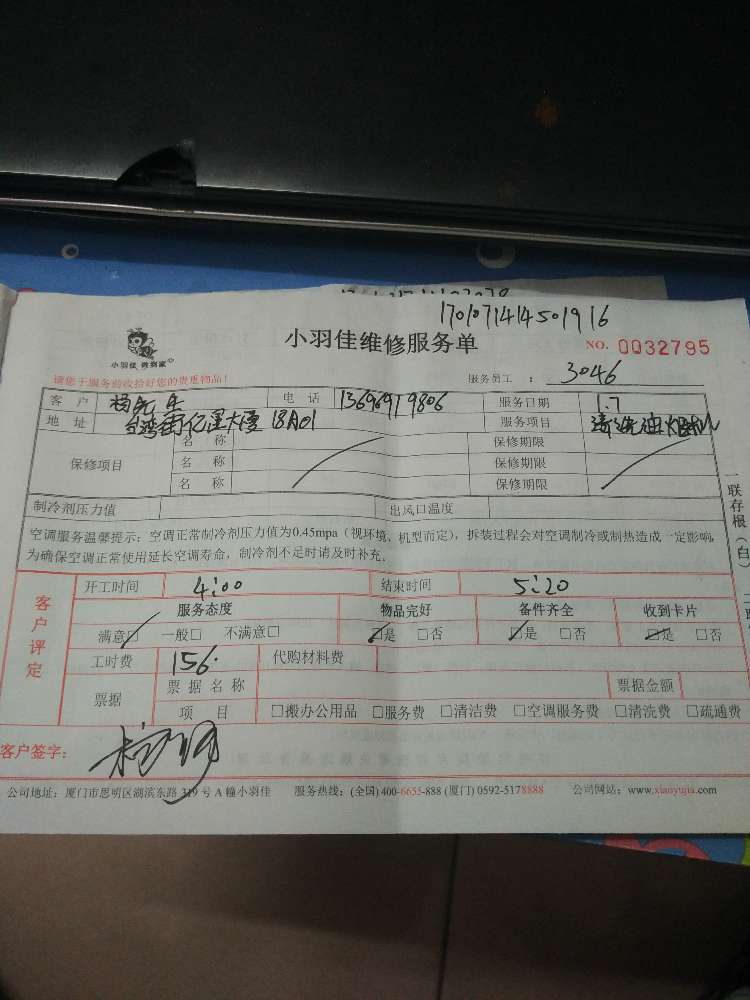 17010714145019 16
小羽佳维修服务单
NO. 0032795
小羽佳 做到家
请您于服务前收拾好您的贵重物品！
服务员工 ： 3046
客户 杨先生 电话 13696919806 服务日期 1.7
地址 台湾街亿星大厦 18A01 服务项目 清洗油烟机
保修项目 名称 保修期限
名称 保修期限
名称 保修期限
制冷剂压力值 出风口温度
空调服务温馨提示：空调正常制冷剂压力值为0.45mpa（视环境、机型而定），拆装过程会对空调制冷或制热造成一定影响，
为确保空调正常使用延长空调寿命，制冷剂不足时请及时补充。
客户评定
开工时间 4:00 结束时间 5:20
服务态度 物品完好 备件齐全 收到卡片
满意☑ 一般□ 不满意□ ☑是 □否 ☑是 □否 ☑是 □否
工时费 156. 代购材料费
票据 票据名称 票据金额
项目 □搬办公用品 □服务费 □清洁费 □空调服务费 □清洗费 □疏通费
客户签字：
公司地址：厦门市思明区湖滨东路 319 号 A 幢小羽佳 服务热线：(全国) 400-6655-888 (厦门) 0592-5178888 公司网站：www.xiaoyujia.com
一联存根（白）